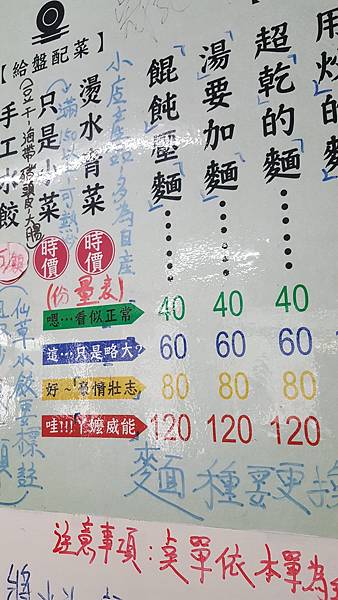 用炒的麵
超「乾」的「麵」……
「湯」要加「麵」……
「餛飩」壓「麵」……
小店產品多為自產
燙水青菜
時價
只是小菜
時價
(豆干海帶豬頭皮大腸
【給盤配菜】
手工水餃
(份量表)
嗯…看似正常 40 40 40
這…只是略大 60 60 60
好~豪情壯志 80 80 80
哇!!!阿嬤威能 120 120 120
仙草水餃要標註
麵種要更換
注意事項:點單依本單為